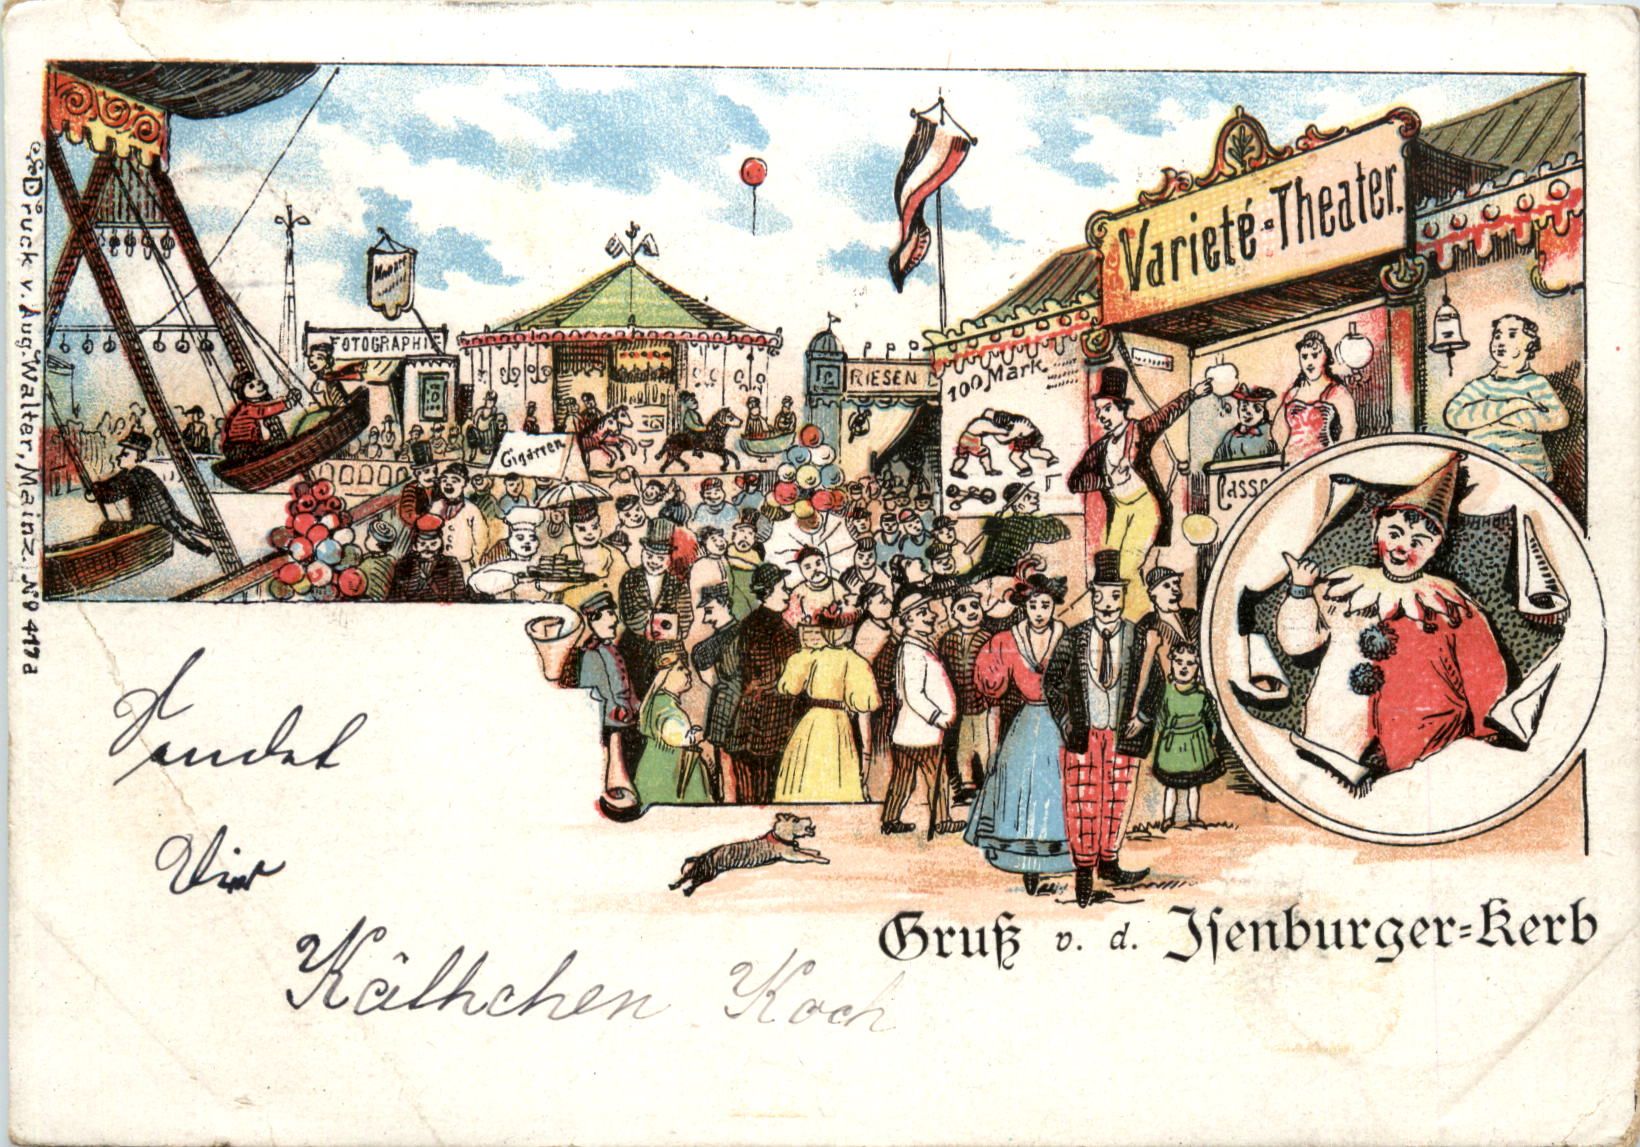 Varieté-Theater.
FOTOGRAPHIE
RIESEN
100 Mark
Cigarren
Casse
Druck v. Aug. Walter, Mainz. No 417a
Käthchen Koch
Gruß v. d. Isenburger-Kerb